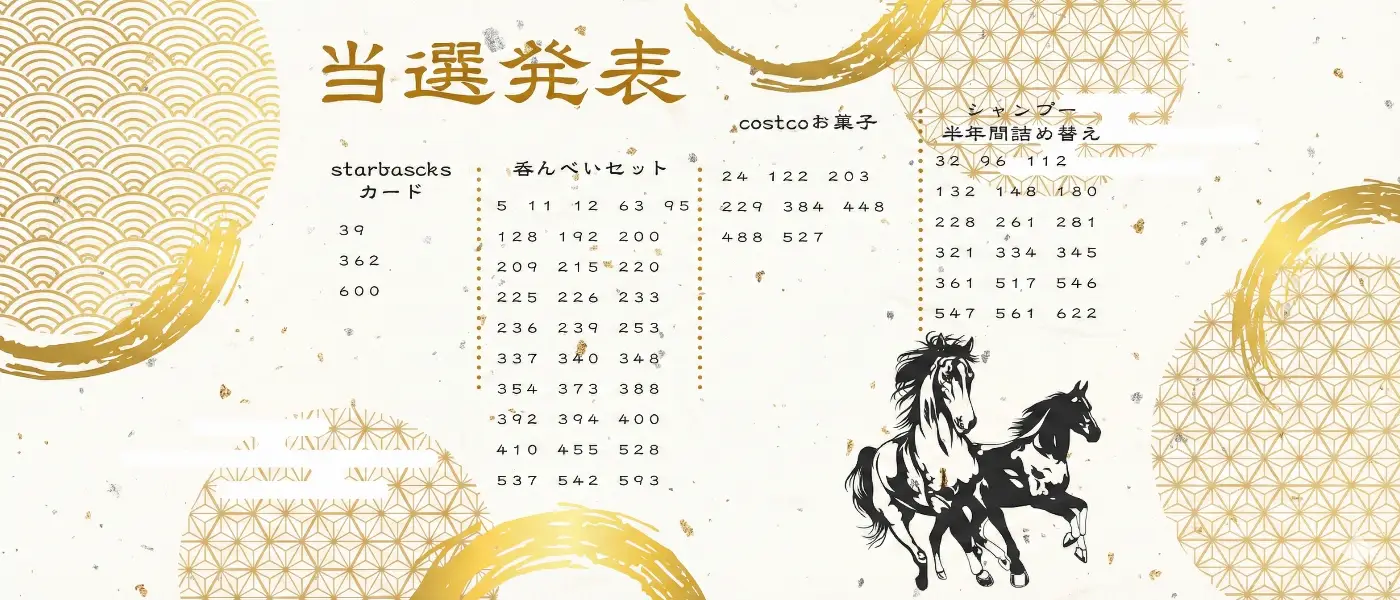 当選発表
starbascks
カード
39
362
600
呑んべいセット
5 11 12 63 95
128 192 200
209 215 220
225 226 233
236 239 253
337 340 348
354 373 388
392 394 400
410 455 528
537 542 593
costcoお菓子
24 122 203
229 384 448
488 527
シャンプー
半年間詰め替え
32 96 112
132 148 180
228 261 281
321 334 345
361 517 546
547 561 622